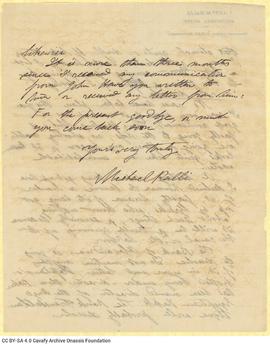 likewise
It is more than three months
since I received any communication
from John. Have you written to
him or received any letter from him?
For the present goodbye, & mind
you come back soon
Yours very truly
Michael Ralli
CC BY-SA 4.0 Cavafy Archive Onassis Foundation